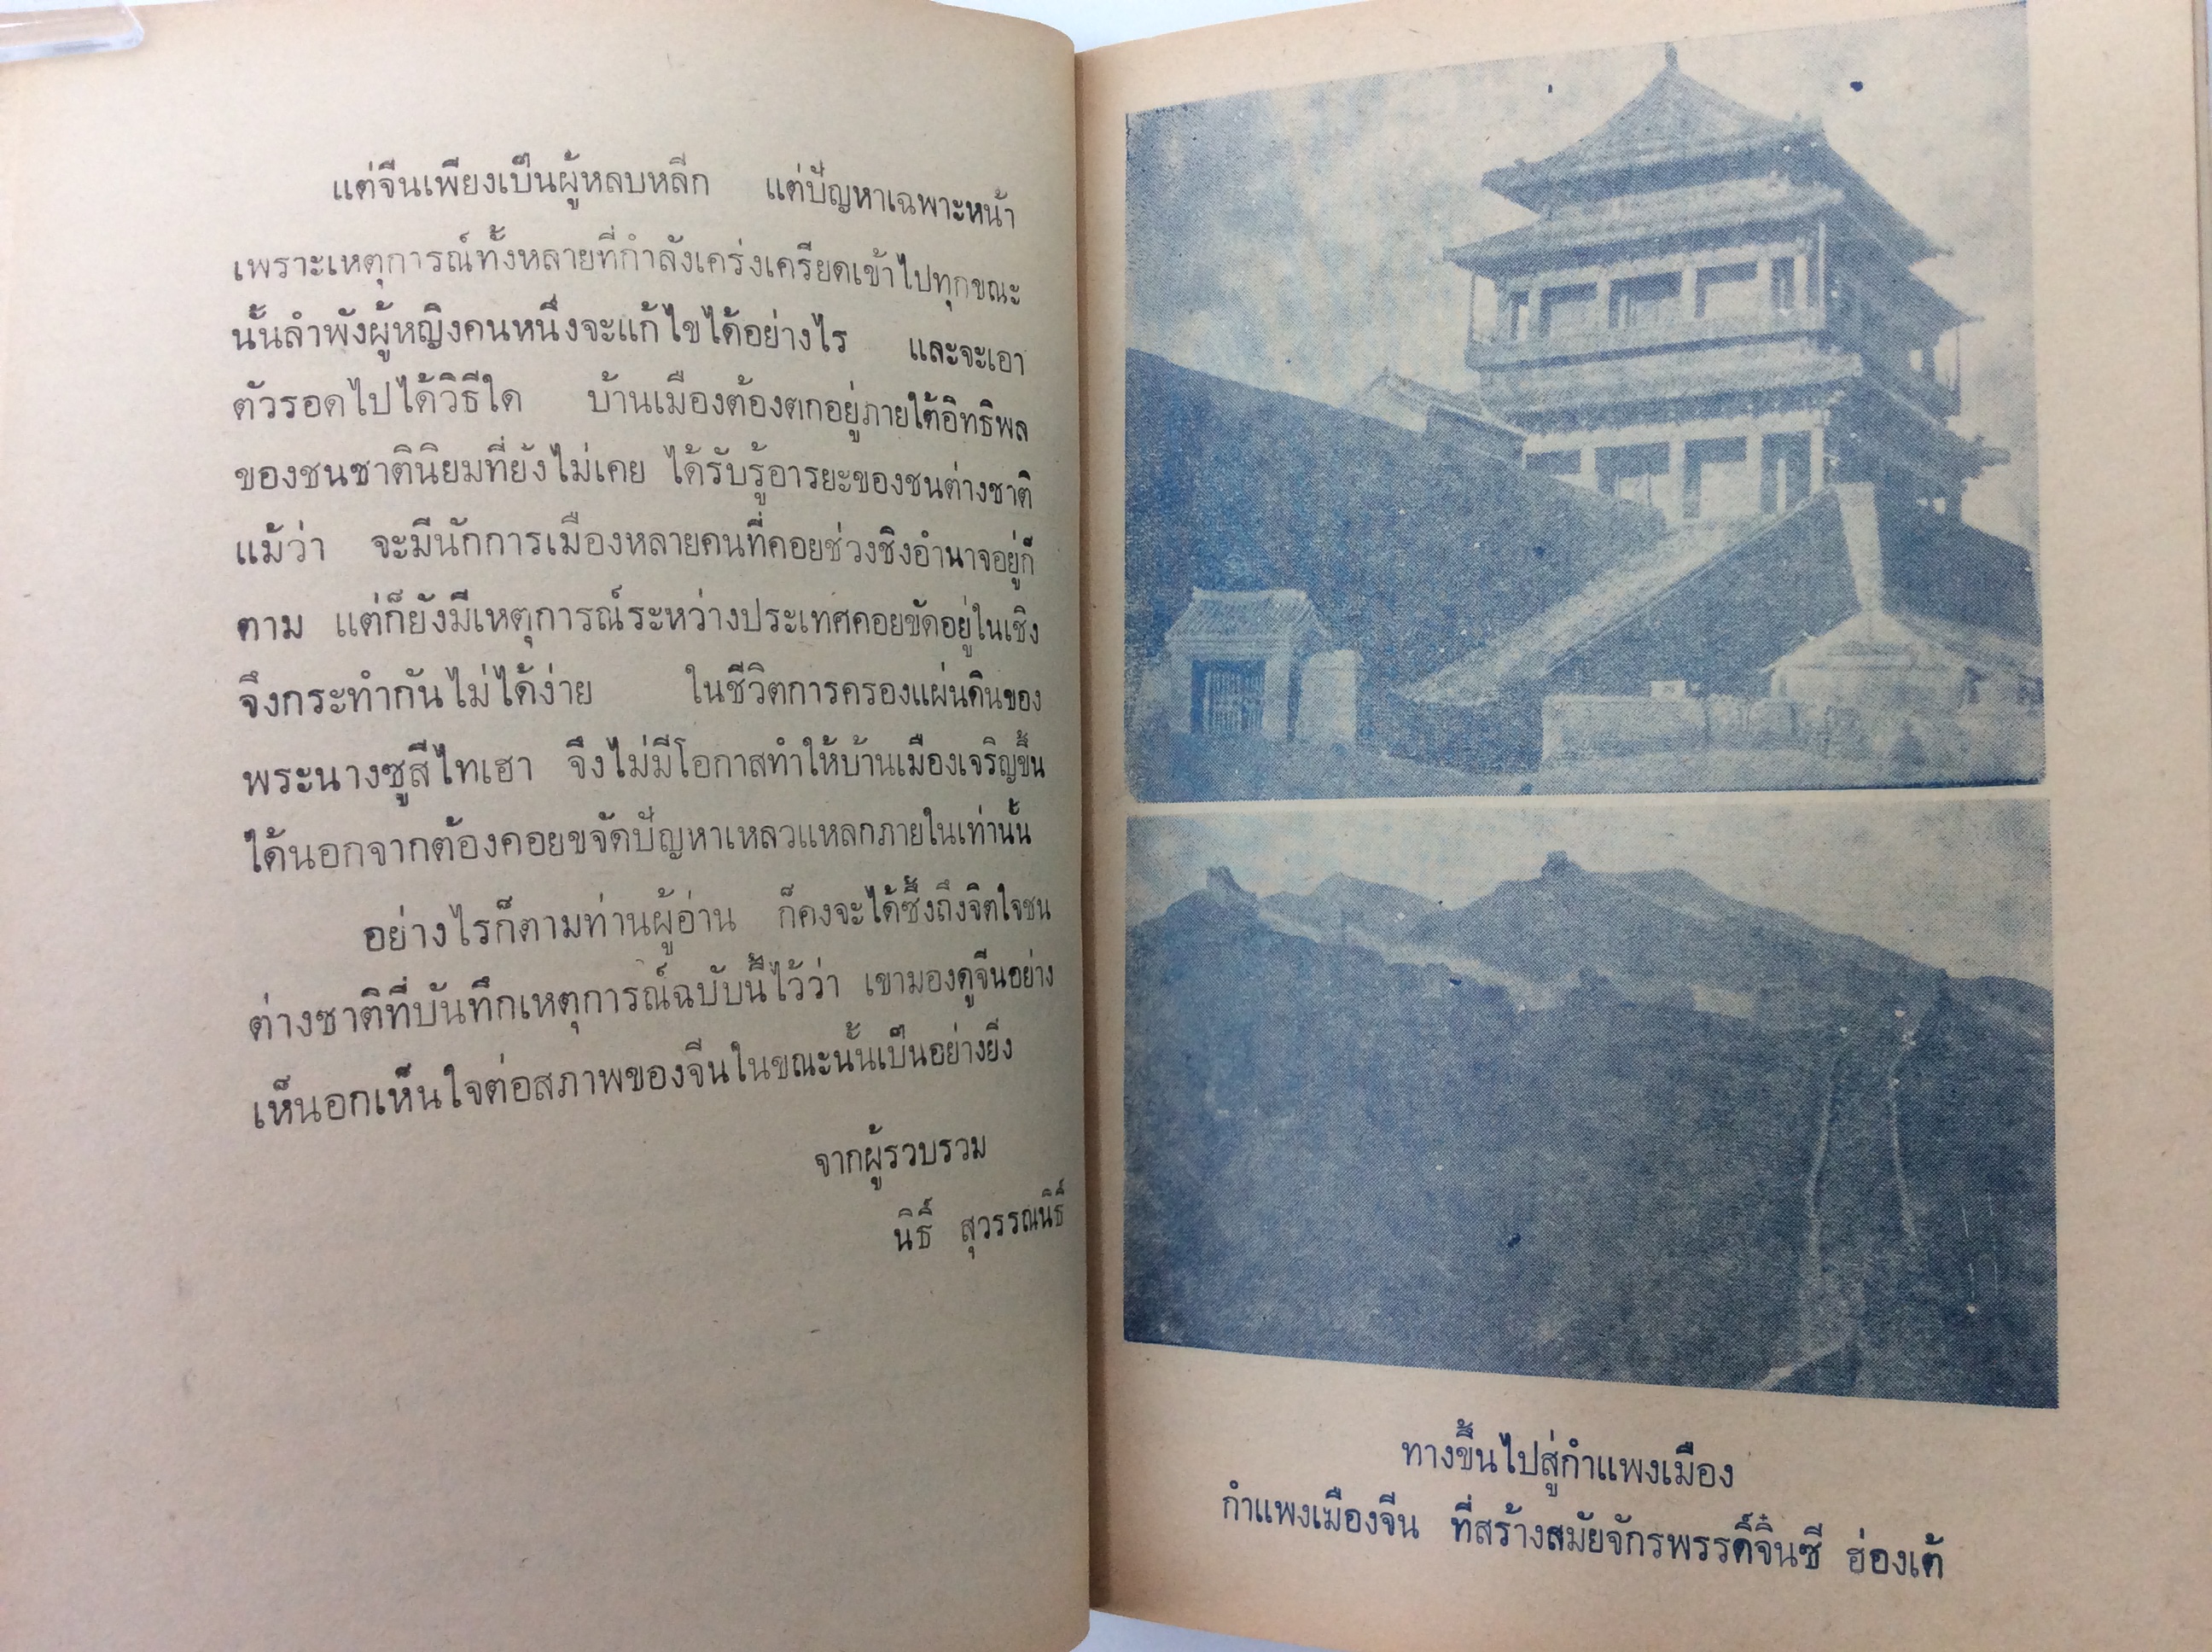 แต่จีนเพียงเป็นผู้หลบหลีก แต่ปัญหาเฉพาะหน้า
เพราะเหตุการณ์ทั้งหลายที่กำลังเคร่งเครียดเข้าไปทุกขณะ
นั้นลำพังผู้หญิงคนหนึ่งจะแก้ไขได้อย่างไร และจะเอา
ตัวรอดไปได้วิธีใด บ้านเมืองต้องตกอยู่ภายใต้อิทธิพล
ของชนชาตินิยมที่ยังไม่เคย ได้รับรู้อารยะของชนต่างชาติ
แม้ว่า จะมีนักการเมืองหลายคนที่คอยช่วงชิงอำนาจอยู่ก็
ตาม แต่ก็ยังมีเหตุการณ์ระหว่างประเทศคอยขัดอยู่ในเชิง
จึงกระทำกันไม่ได้ง่าย ในชีวิตการครองแผ่นดินของ
พระนางซูสีไทเฮา จึงไม่มีโอกาสทำให้บ้านเมืองเจริญขึ้น
ได้นอกจากต้องคอยขจัดปัญหาเหลวแหลกภายในเท่านั้น
อย่างไรก็ตามท่านผู้อ่าน ก็คงจะได้ซึ้งถึงจิตใจชน
ต่างชาติที่บันทึกเหตุการณ์ฉบับนี้ไว้ว่า เขามองดูจีนอย่าง
เห็นอกเห็นใจต่อสภาพของจีนในขณะนั้นเป็นอย่างยิ่ง
จากผู้รวบรวม
นิธิ์ สุวรรณนิธิ์
ทางขึ้นไปสู่กำแพงเมือง
กำแพงเมืองจีน ที่สร้างสมัยจักรพรรดิ์จิ๋นซี ฮ่องเต้